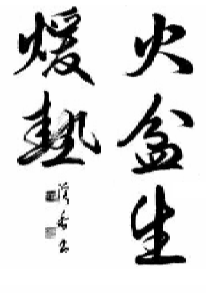 火盆生
煖熱